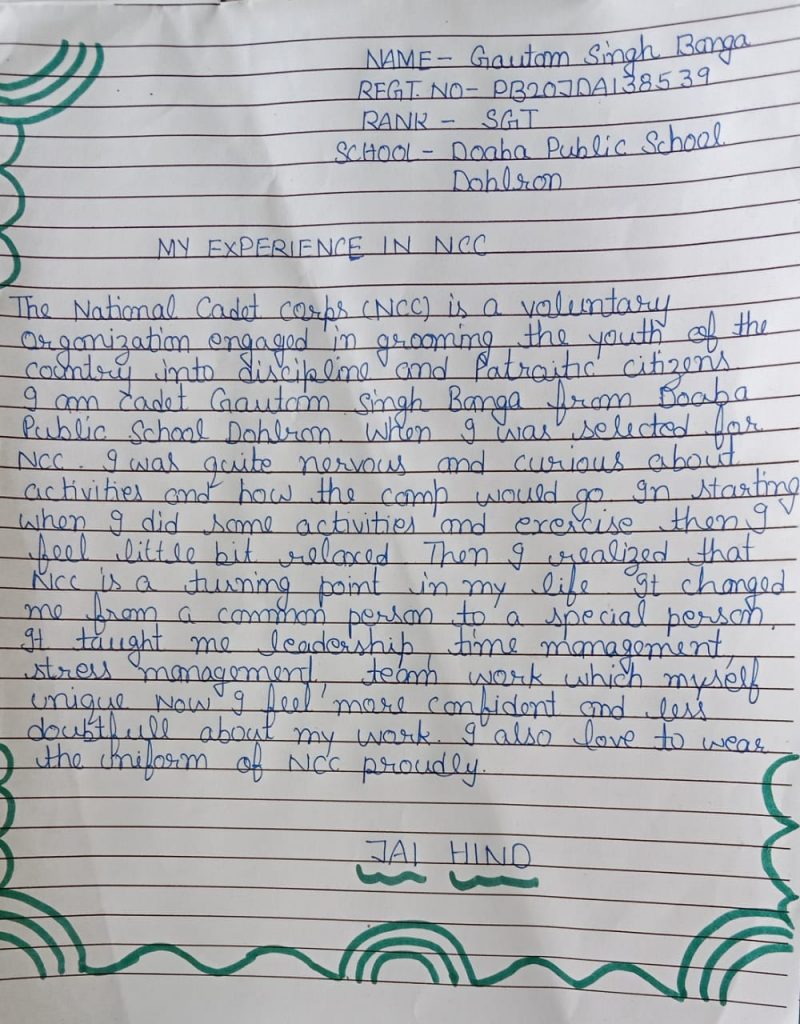 NAME - Gautam Singh Banga
REGT. NO - PB20JDA138539
RANK - SGT
SCHOOL - Doaba Public School
Dohlron
MY EXPERIENCE IN NCC
The National Cadet corps (NCC) is a voluntary
organization engaged in grooming the youth of the
country into discipline and Patraitic citizens.
I am cadet Gautam Singh Banga from Doaba
Public School Dohlron. When I was selected for
NCC. I was quite nervous and curious about
activities and how the camp would go. In starting
when I did some activities and exercise then I
feel little bit relaxed. Then I realized that
NCC is a turning point in my life. It changed
me from a common person to a special person.
It taught me leadership, time management,
stress management, team work which myself
unique. Now I feel more confident and less
doubtfull about my work. I also love to wear
the Uniform of NCC proudly.
JAI HIND